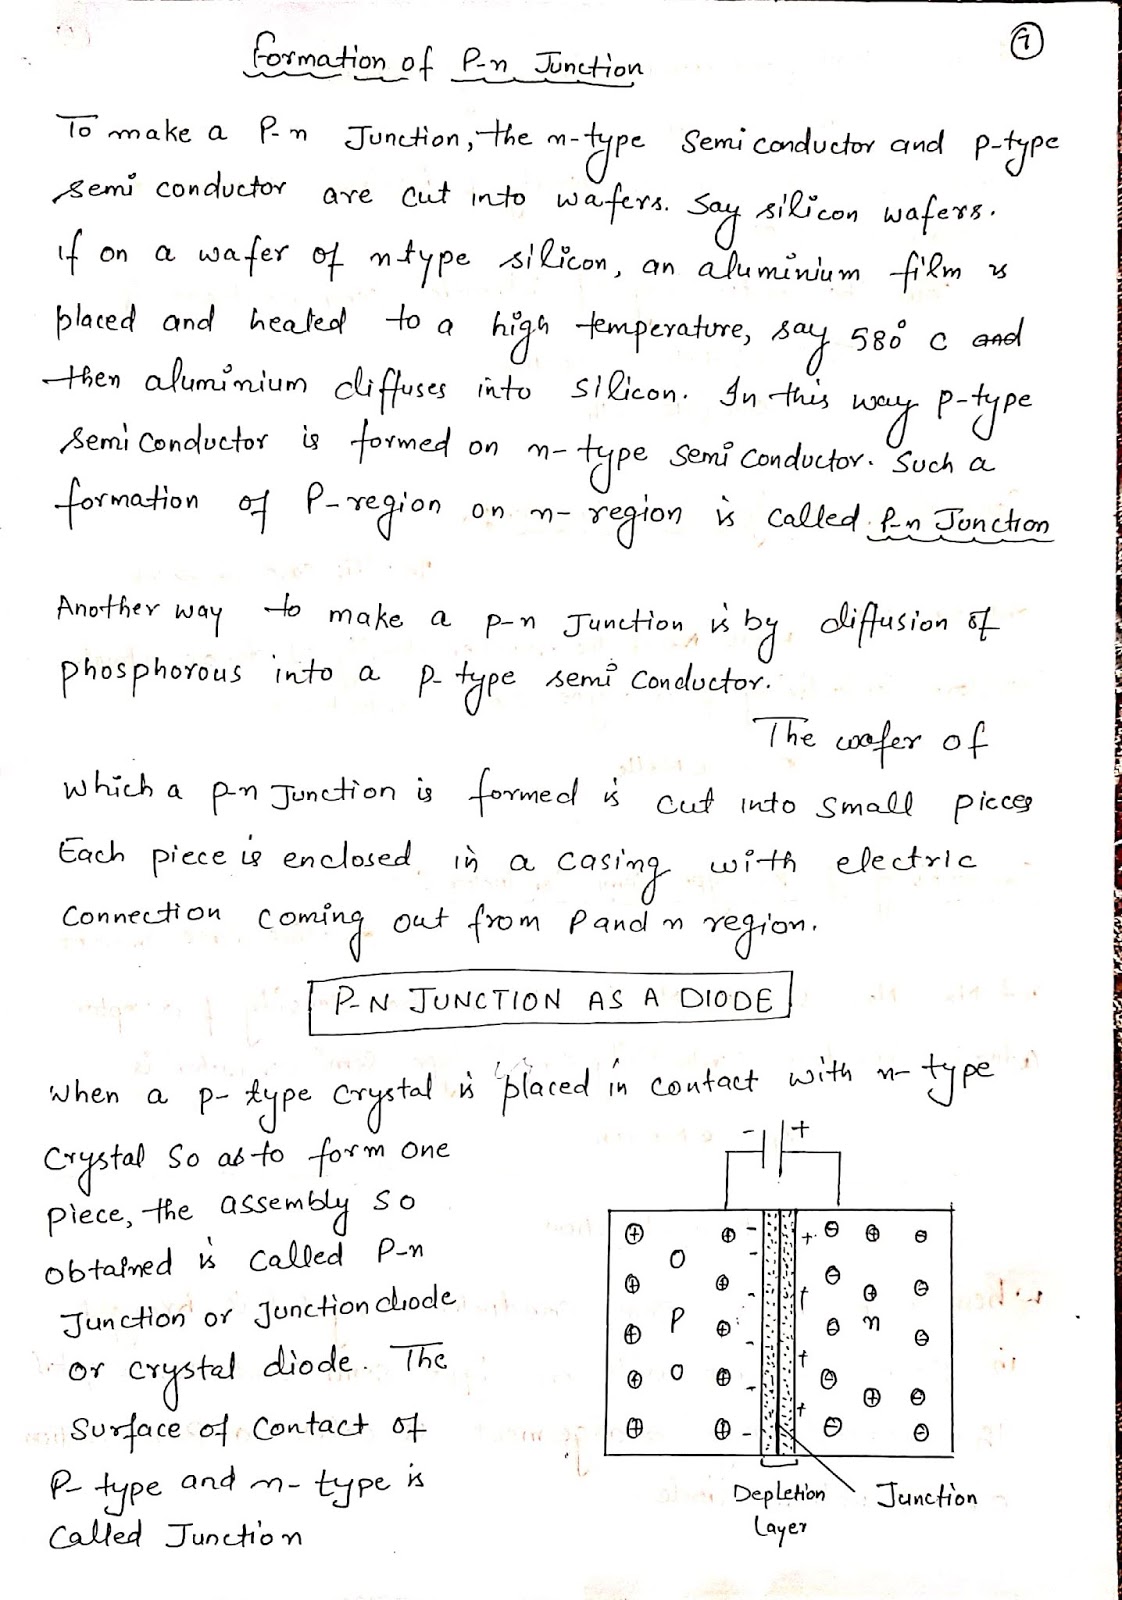 7
Formation of P-n Junction
To make a P-n Junction, the n-type Semi conductor and p-type
semi conductor are cut into wafers. Say silicon wafers.
if on a wafer of n-type silicon, an aluminium film is
placed and heated to a high temperature, say 580° C and
then aluminium diffuses into silicon. In this way p-type
semi conductor is formed on n-type semi conductor. Such a
formation of P-region on n-region is called P-n Junction
Another way to make a p-n Junction is by diffusion of
phosphorous into a p-type semi conductor.
The wafer of
which a p-n Junction is formed is cut into small pieces
Each piece is enclosed in a casing with electric
Connection coming out from P and n region.
P-N JUNCTION AS A DIODE
When a p-type crystal is placed in contact with n-type
Crystal So as to form one
piece, the assembly so
obtained is called P-n
Junction or Junction diode
or crystal diode. The
Surface of contact of
P-type and n-type is
Called Junction
- +
O
P
O
n
Depletion
Layer
Junction